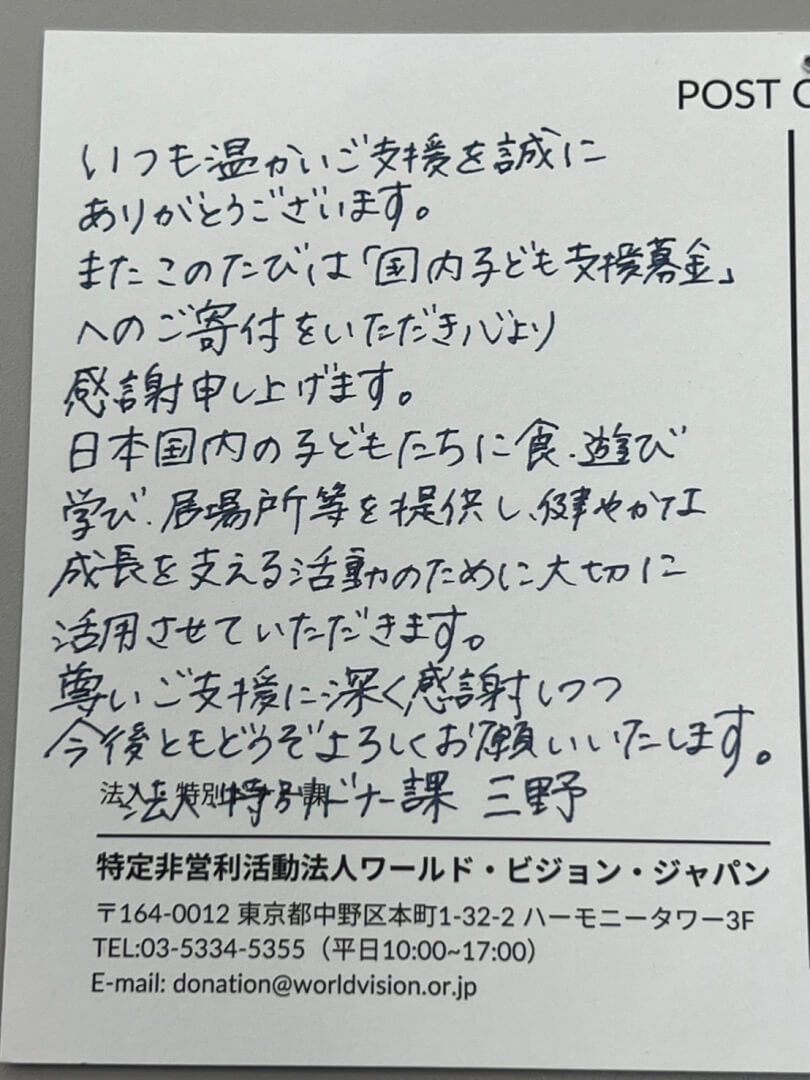 POST C
いつも温かいご支援を誠に
ありがとうございます。
またこのたびは「国内子ども支援募金」
へのご寄付をいただき心より
感謝申し上げます。
日本国内の子どもたちに食、遊び
学び、居場所等を提供し、健やかな
成長を支える活動のために大切に
活用させていただきます。
尊いご支援に深く感謝しつつ
今後ともどうぞよろしくお願いいたします。
法人・特別ドナー課 三野
特定非営利活動法人ワールド・ビジョン・ジャパン
〒164-0012 東京都中野区本町1-32-2 ハーモニータワー3F
TEL:03-5334-5355（平日10:00~17:00）
E-mail: donation@worldvision.or.jp